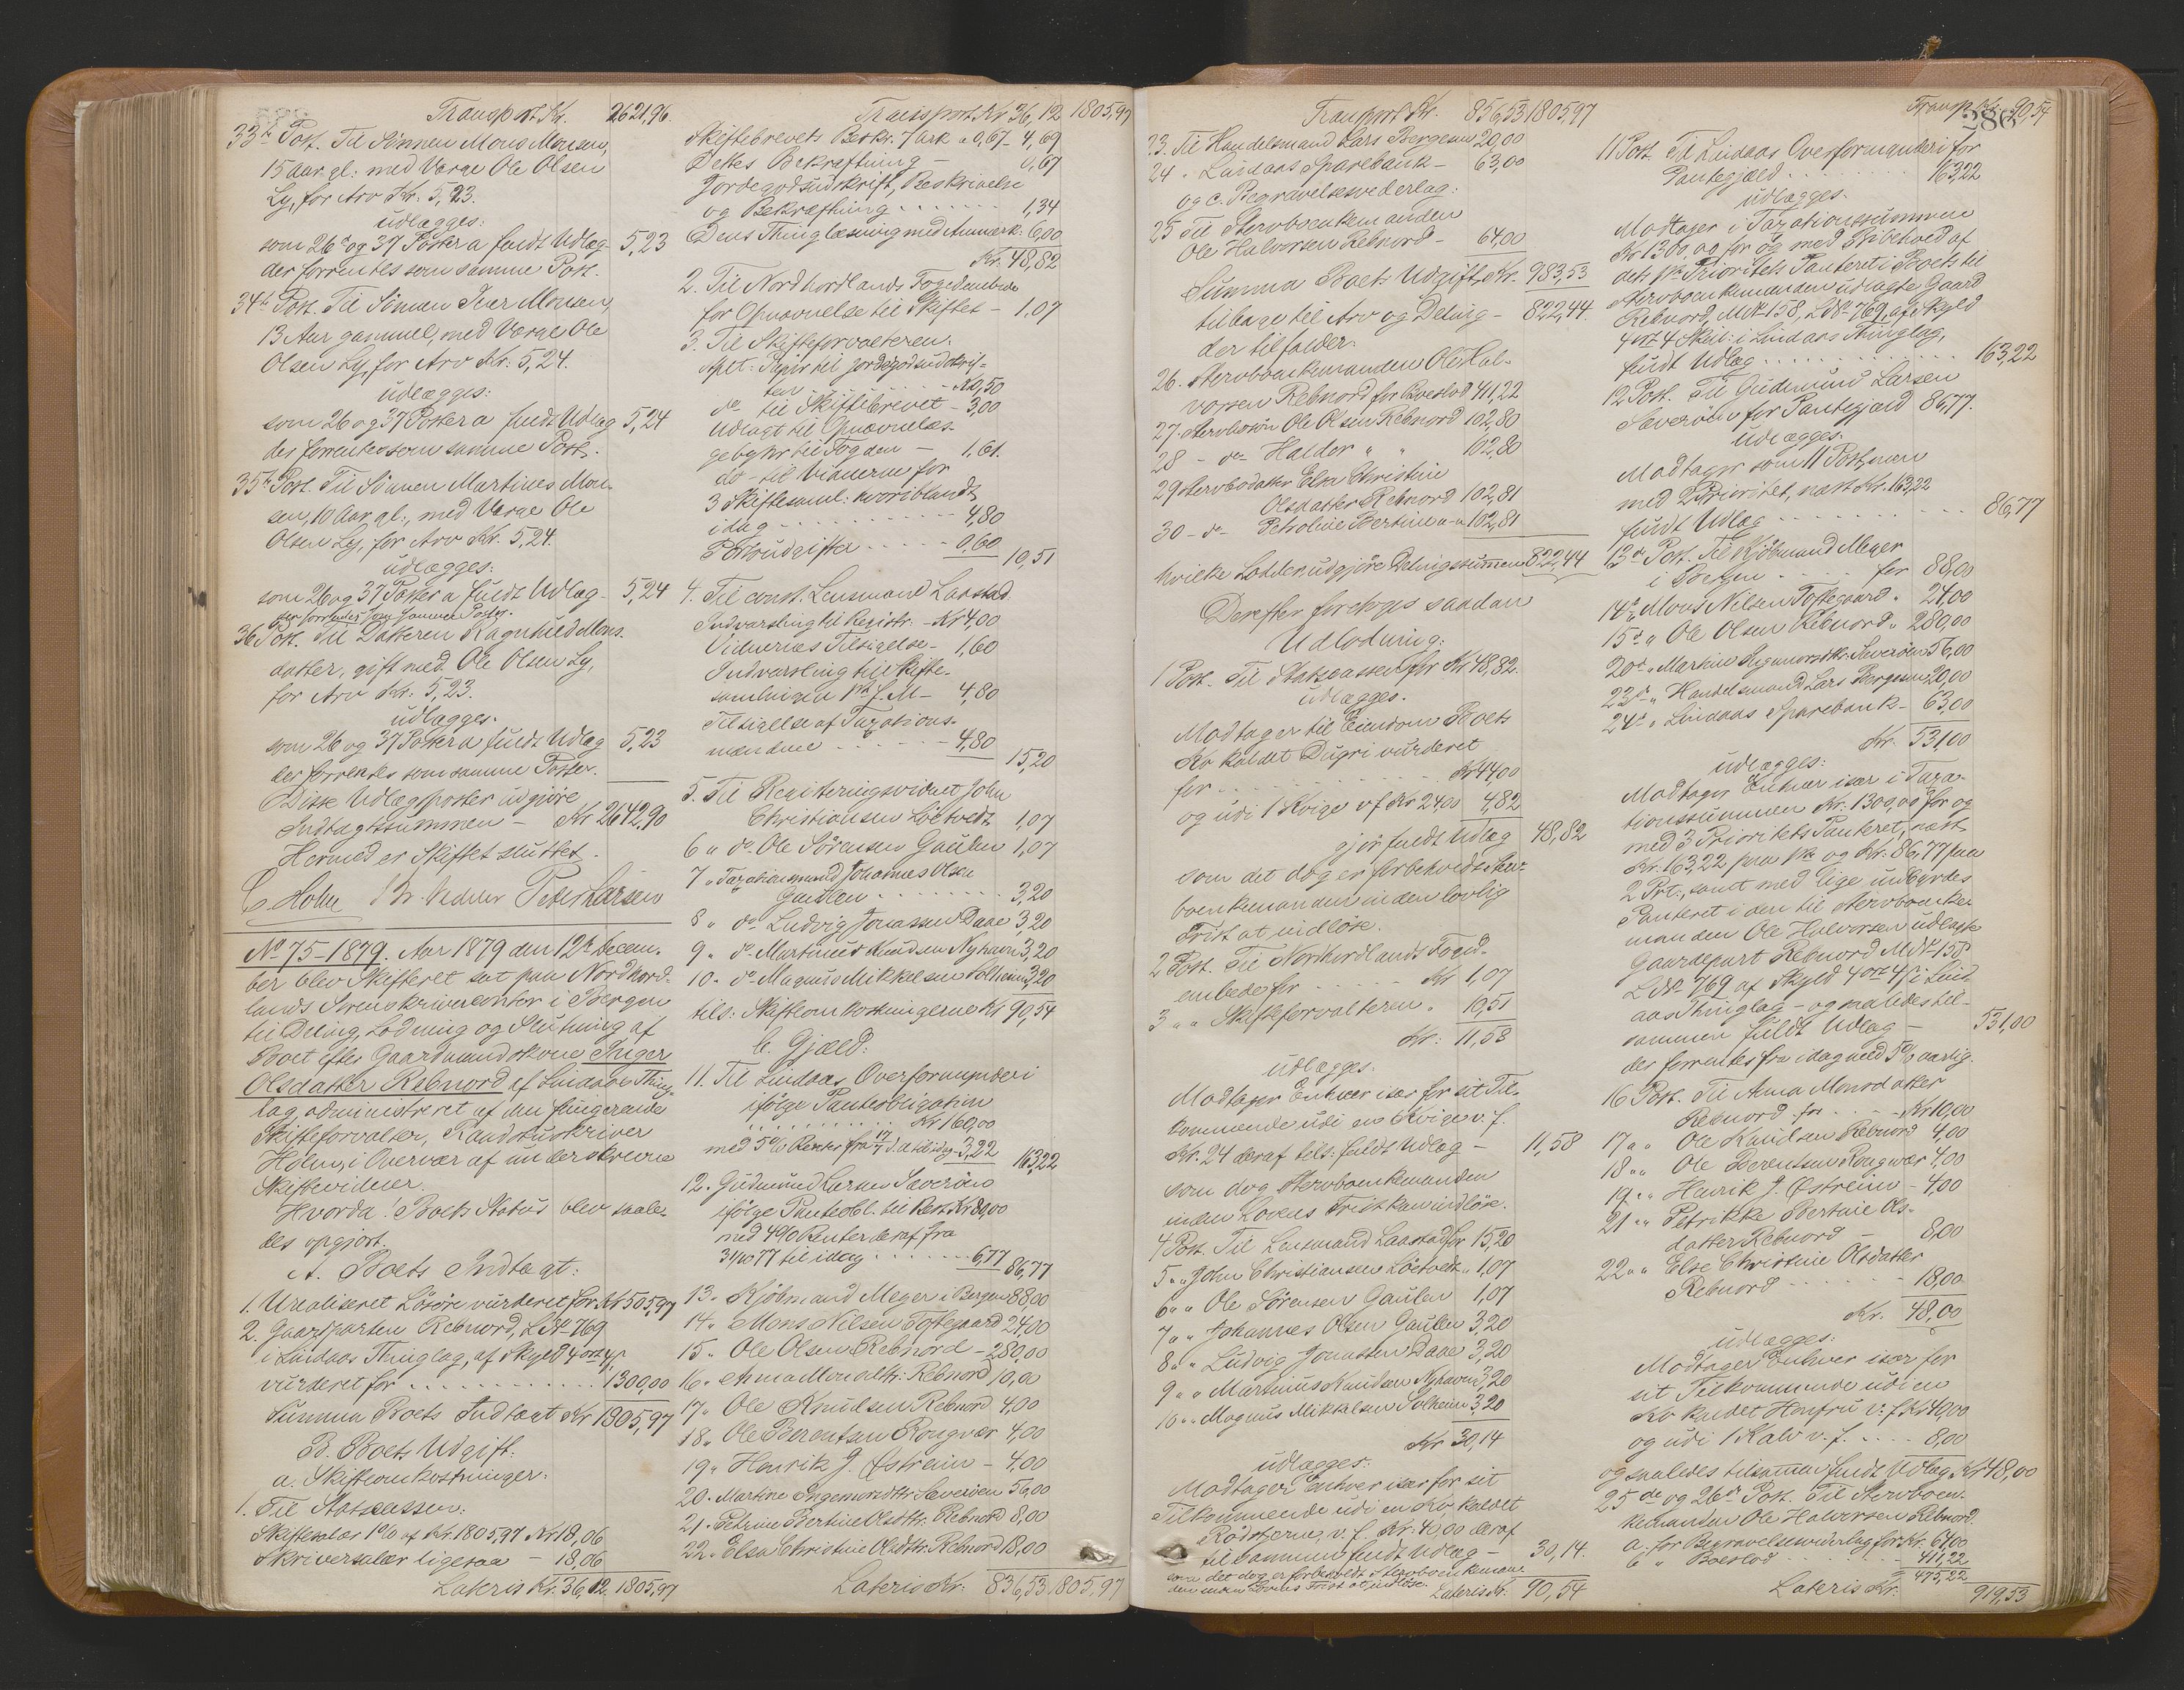 Transport Kr. 2621,96.
33te Post. Til Sønnen Mons Monsen,
15 Aar gl: med Værge Ole Olsen
Ly, for Arv Kr: 5,23.
udlægges:
som 26de og 37 Poster a fuldt Udlæg 5,23
der forrentes som samme Post.
34te Post. Til Sønnen Iver Monsen,
13 Aar gammel, med Værge Ole
Olsen Ly, for Arv Kr: 5,24.
udlægges:
som 26 og 37 Poster a fuldt Udlæg 5,24
der forrentes som samme Post.
35te Post. Til Sønnen Martinus Mon-
sen, 10 Aar gl:, med Værge Ole
Olsen Ly, for Arv Kr. 5,24.
udlægges:
som 26 og 37 Poster a fuldt Udlæg 5,24
der forrentes som samme Poster.
36 Post. Til Datteren Ragnhild Mons-
datter, gift med Ole Olsen Ly,
for Arv Kr: 5,23.
udlægges.
som 26 og 37 Poster a fuldt Udlæg 5,23
der forrentes som samme Poster.
Disse Udlægsposter udgjøre
Indtægtssummen – Kr 2642,90
Hermed er Skiftet sluttet.
C. Holm Peter Larsen
No 75–1879. Aar 1879 den 12te Decem-
ber blev Skifteret sat paa Nordhord-
lands Sorenskrivercontor i Bergen
til Deling, Lodning og Slutning af
Boet efter Gaardmandskone Inger
Olsdatter Rebnord af Lindaas Thing-
lag, administreret af den fungerende
Skifteforvalter, Raadstuskriver
Holm, i Overvær af underskrevne
Skiftevidner.
Hvorda! Boets Status blev saale-
des opgjort.
A. Boets Indtægt:
1. Urealiseret Løsøre vurderet for Kr 505,97
2. Gaardparten Rebnord, L.No 769
i Lindaas Thinglag, af Skyld 4 ort 4 ß
vurderet for . . . . . 1300,00
Summa Boets Indtægt Kr 1805,97
B. Boets Udgift:
a. Skifteomkostninger:
1. Til Statscassen:
Skiftesalær 1% af Kr. 1805,97 Kr 18,06
Skriversalær ligesaa – 18,06
Lateris Kr. 36,12. 1805,97
Transport Kr 36,12 1805,97
Skiftebrevets Beskr. 7 Ark a 0,67 – 4,69
Dettes Bekræftning – 0,67
Jordegodsudskrift, Beskrivelse
og Bekræftning . . . . 1,34
Dens Thinglæsning med Anmærk: 6,00
Kr: 48,82
2. Til Nordhordlands Fogedembede
for Opnævnelse til Skiftet – 1,07
3. Til Skifteforvalteren:
Stplt: Papir til Jordegodsudskrif-
ten . . . . Kr 0,50
do til Skiftebrevet – 3,00
Udlagt til Opnævnelses-
gebyhr til Fogden – 1,61.
do – til Vidnerne for
3 Skiftesaml: hvoriblandt
idag . . . . 4,80
Portoudgifter . . . . 0,60
10,51
4. Til const. Lensmand Laastad
Indvarsling til Registr: – Kr 4,00
Vidnernes Tilsigelse – 1,60
Indvarsling til Skifte-
samlingen – 4,80
Tilsigelse af Taxations-
mændene . . . . 4,80
15,20
5. Til Registeringsvidnet John
Christiansen Løtvedt 1,07
6 " do Ole Sørensen Gaulen 1,07
7 " Taxationsmand Johannes Olsen
Gaulen . . . . 3,20
8 " do Ludvig Jonassen Daae 3,20
9 " do Martinus Knudsen Nyhavn 3,20
10 " do Magnus Mikkelsen Solheim 3,20
tils: Skifteomkostningerne Kr 90,54
b. Gjæld:
11. Til Lindaas Overformynderi
ifølge Panteobligation
. . . . Kr 160,00
med 5% Renter fra 17/7 d. A. til idag 3,22
163,22
12. Gudmund Larsen Sæverøen
ifølge Panteobl. til Rest Kr 80,00
med 4% Renter deraf fra
31/10 77 til idag . . . . 6,77
86,77
13. Kjøbmand Meyer i Bergen 88,00
14 " Mons Nilsen Toftegaard 24,00
15 " Ole Olsen Rebnord – 280,00
16 " Anna Monsdtr: Rebnord 10,00
17 " Ole Knudsen Rebnord 4,00
18 " Ole Berentsen Rongvær 4,00
19 " Henrik J. Østreim – 4,00
20 " Martine Ingemorsdtr. Sæverøen 56,00
21 " Petrine Bertine Olsdtr: Rebnord 8,00
22 " Elsa Christine Olsdtr: Rebnord 18,00
Lateris Kr: 836,53 1805,97
Transport Kr. 836,53 1805,97
23. Til Handelsmand Lars Bergesen 20,00
24 " Lindaas Sparebank – 63,00
og c. Begravelsesvederlag:
25 Til Stervboenkemanden
Ole Halvorsen Rebnord – 64,00
Summa Boets Udgift Kr. 983,53
tilbage til Arv og Deling – 822,44.
der tilfalder:
26. Stervboenkemanden Ole Hal-
vorsen Rebnord for Boeslod 411,22
27. Stervbosøn Ole Olsen Rebnord 102,80
28 – do – Haldor " " 102,80
29 Stervbodatter Elsa Christine
Olsdatter Rebnord 102,81
30 – do – Petroline Bertine " – " 102,81
hvilke Lodder udgjøre Delingssummen 822,44
Derefter foretoges saadan
Udlodning:
1 Post. Til Statscassen for Kr 48,82.
udlægges.
Modtager til Eiendom Boets
Ko kaldet Dugri vurderet
for . . . . Kr 44,00
og udi 1 Kvige v.f. Kr 24,00 4,82
gjør fuldt Udlæg 48,82
som det dog er forbeholdt Sterv-
boenkemanden inden lovlig
Frist at indløse.
2 Post. Til Nordhordlands Foged-
embede for . . . . Kr 1,07
3 " " Skifteforvalteren " 10,51
Kr: 11,58
udlægges.
Modtager Enhver især for sit Til-
kommende udi en Kvige v. f.
Kr. 24 deraf tils: fuldt Udlæg – 11,58
som dog Stervboenkemanden
inden Lovens Frist kan indløse.
4 Post. Til Lensmand Laastad for 15,20
5 " " John Christiansen Løtvedt " 1,07
6 " " Ole Sørensen Gaulen 1,07
7 " " Johannes Olsen Gaulen 3,20
8 " " Ludvig Jonassen Daae 3,20
9 " " Martinus Knudsen Nyhavn 3,20
10 " " Magnus Mikkelsen Solheim 3,20
Kr 30,14
udlægges:
Modtager Enhver især for sit
Tilkommende udi en Ko kaldet
Rødstjerne, v. f. Kr: 40,00 deraf
tilsammen fuldt Udlæg – 30,14.
som det dog er forbeholdt Stervboenkeman-
den inden Lovens Frist at indløse.
Lateris Kr. 90,54
Transp. Kr. 90,54
386
11 Post. Til Lindaas Overformynderi for
Pantegjæld . . . . 163,22
udlægges.
Modtager i Taxationssummen
Kr 1300,00 for og med Bibehold af
dets 1ste Prioritets Panteret i Boets til
Stervboenkemanden udlagte Gaard
Rebnord, M.No 158, L.No 769, af Skyld
4 ort 4 Skill: i Lindaas Thinglag,
fuldt Udlæg . . . . 163,22
12 Post. Til Gudmund Larsen
Sæverøen for Pantegjæld 86,77.
udlægges.
Modtager som 11 Post, men
med 2 Prioritet, næst Kr. 163,22
fuldt Udlæg . . . . 86,77
13de Post. Til Kjøbmand Meyer
i Bergen . . . . for 88,00
14de " Mons Nilsen Toftegaard " 24,00
15de " Ole Olsen Rebnord " 280,00
20de " Martine Ingemorsdtr. Sæverøen 56,00
23de " Handelsmand Lars Bergesen 20,00
24de " Lindaas Sparebank – 63,00
Kr. 531,00
udlægges:
Modtager Enhver især i Taxa-
tionssummen Kr. 1300,00 for og
med 3 Prioritets Panteret, næst
Kr. 163,22 paa 1ste og Kr: 86,77 paa
2 Prt., samt med lige indbyrdes
Panteret i den til Stervboenke-
manden Ole Halvorsen udlagte
Gaardepart Rebnord M.No 158,
L.No 769 af Skyld 4 ort 4 ß i Lind-
aas Thinglag – og saaledes til-
sammen fuldt Udlæg – 531,00
der forrentes fra idag med 5% aarlig.
16 Post. Til Anna Monsdatter
Rebnord for . . . . Kr 10,00
17 " " Ole Knudsen Rebnord 4,00
18 " " Ole Berentsen Rongvær 4,00
19 " " Henrik J. Østreim – 4,00
21 " " Petrikke Bertine Ols-
datter Rebnord – 8,00
22 " " Else Christine Olsdatter
Rebnord . . . . 18,00
Kr. 48,00
udlægges:
Modtager Enhver især for
sit Tilkommende udi en
Ko kaldet Honfru v: f. Kr 40,00
og udi 1 Kalv v. f. . . . 8,00
og saaledes tilsammen fuldt Udlæg Kr 48,00
25de og 26de Post. Til Stervboen-
kemanden Ole Halvorsen Rebnord.
a. for Begravelsesvederlag for Kr. 64,00
b " Boeslod . . . . 411,22
475,22
Lateris Kr. 919,53